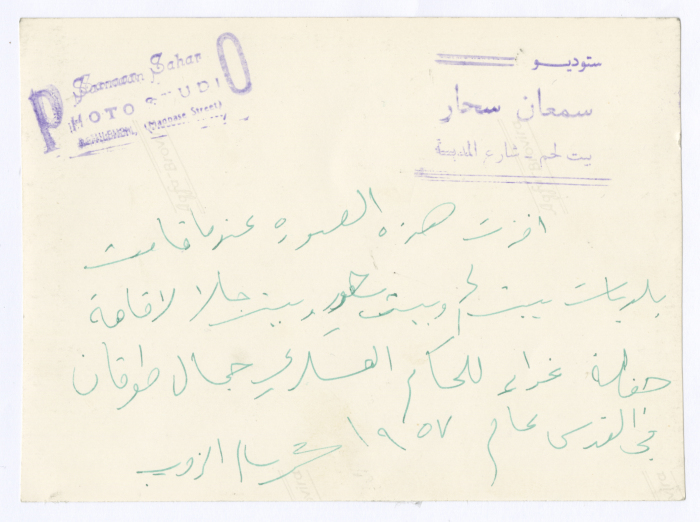 Samaan Sahar
PHOTO STUDIO
BETHLEHEM, (Manger Street)
ستوديو
سمعان سحار
بيت لحم - شارع المدبسة
اخذت هذه الصوره عندما قامت
بلديات بيت لحم وبيت ساحور وبيت جالا لاقامة
حفلة غداء للحاكم العسكري جمال طوقان
في القدس عام ١٩٥٧